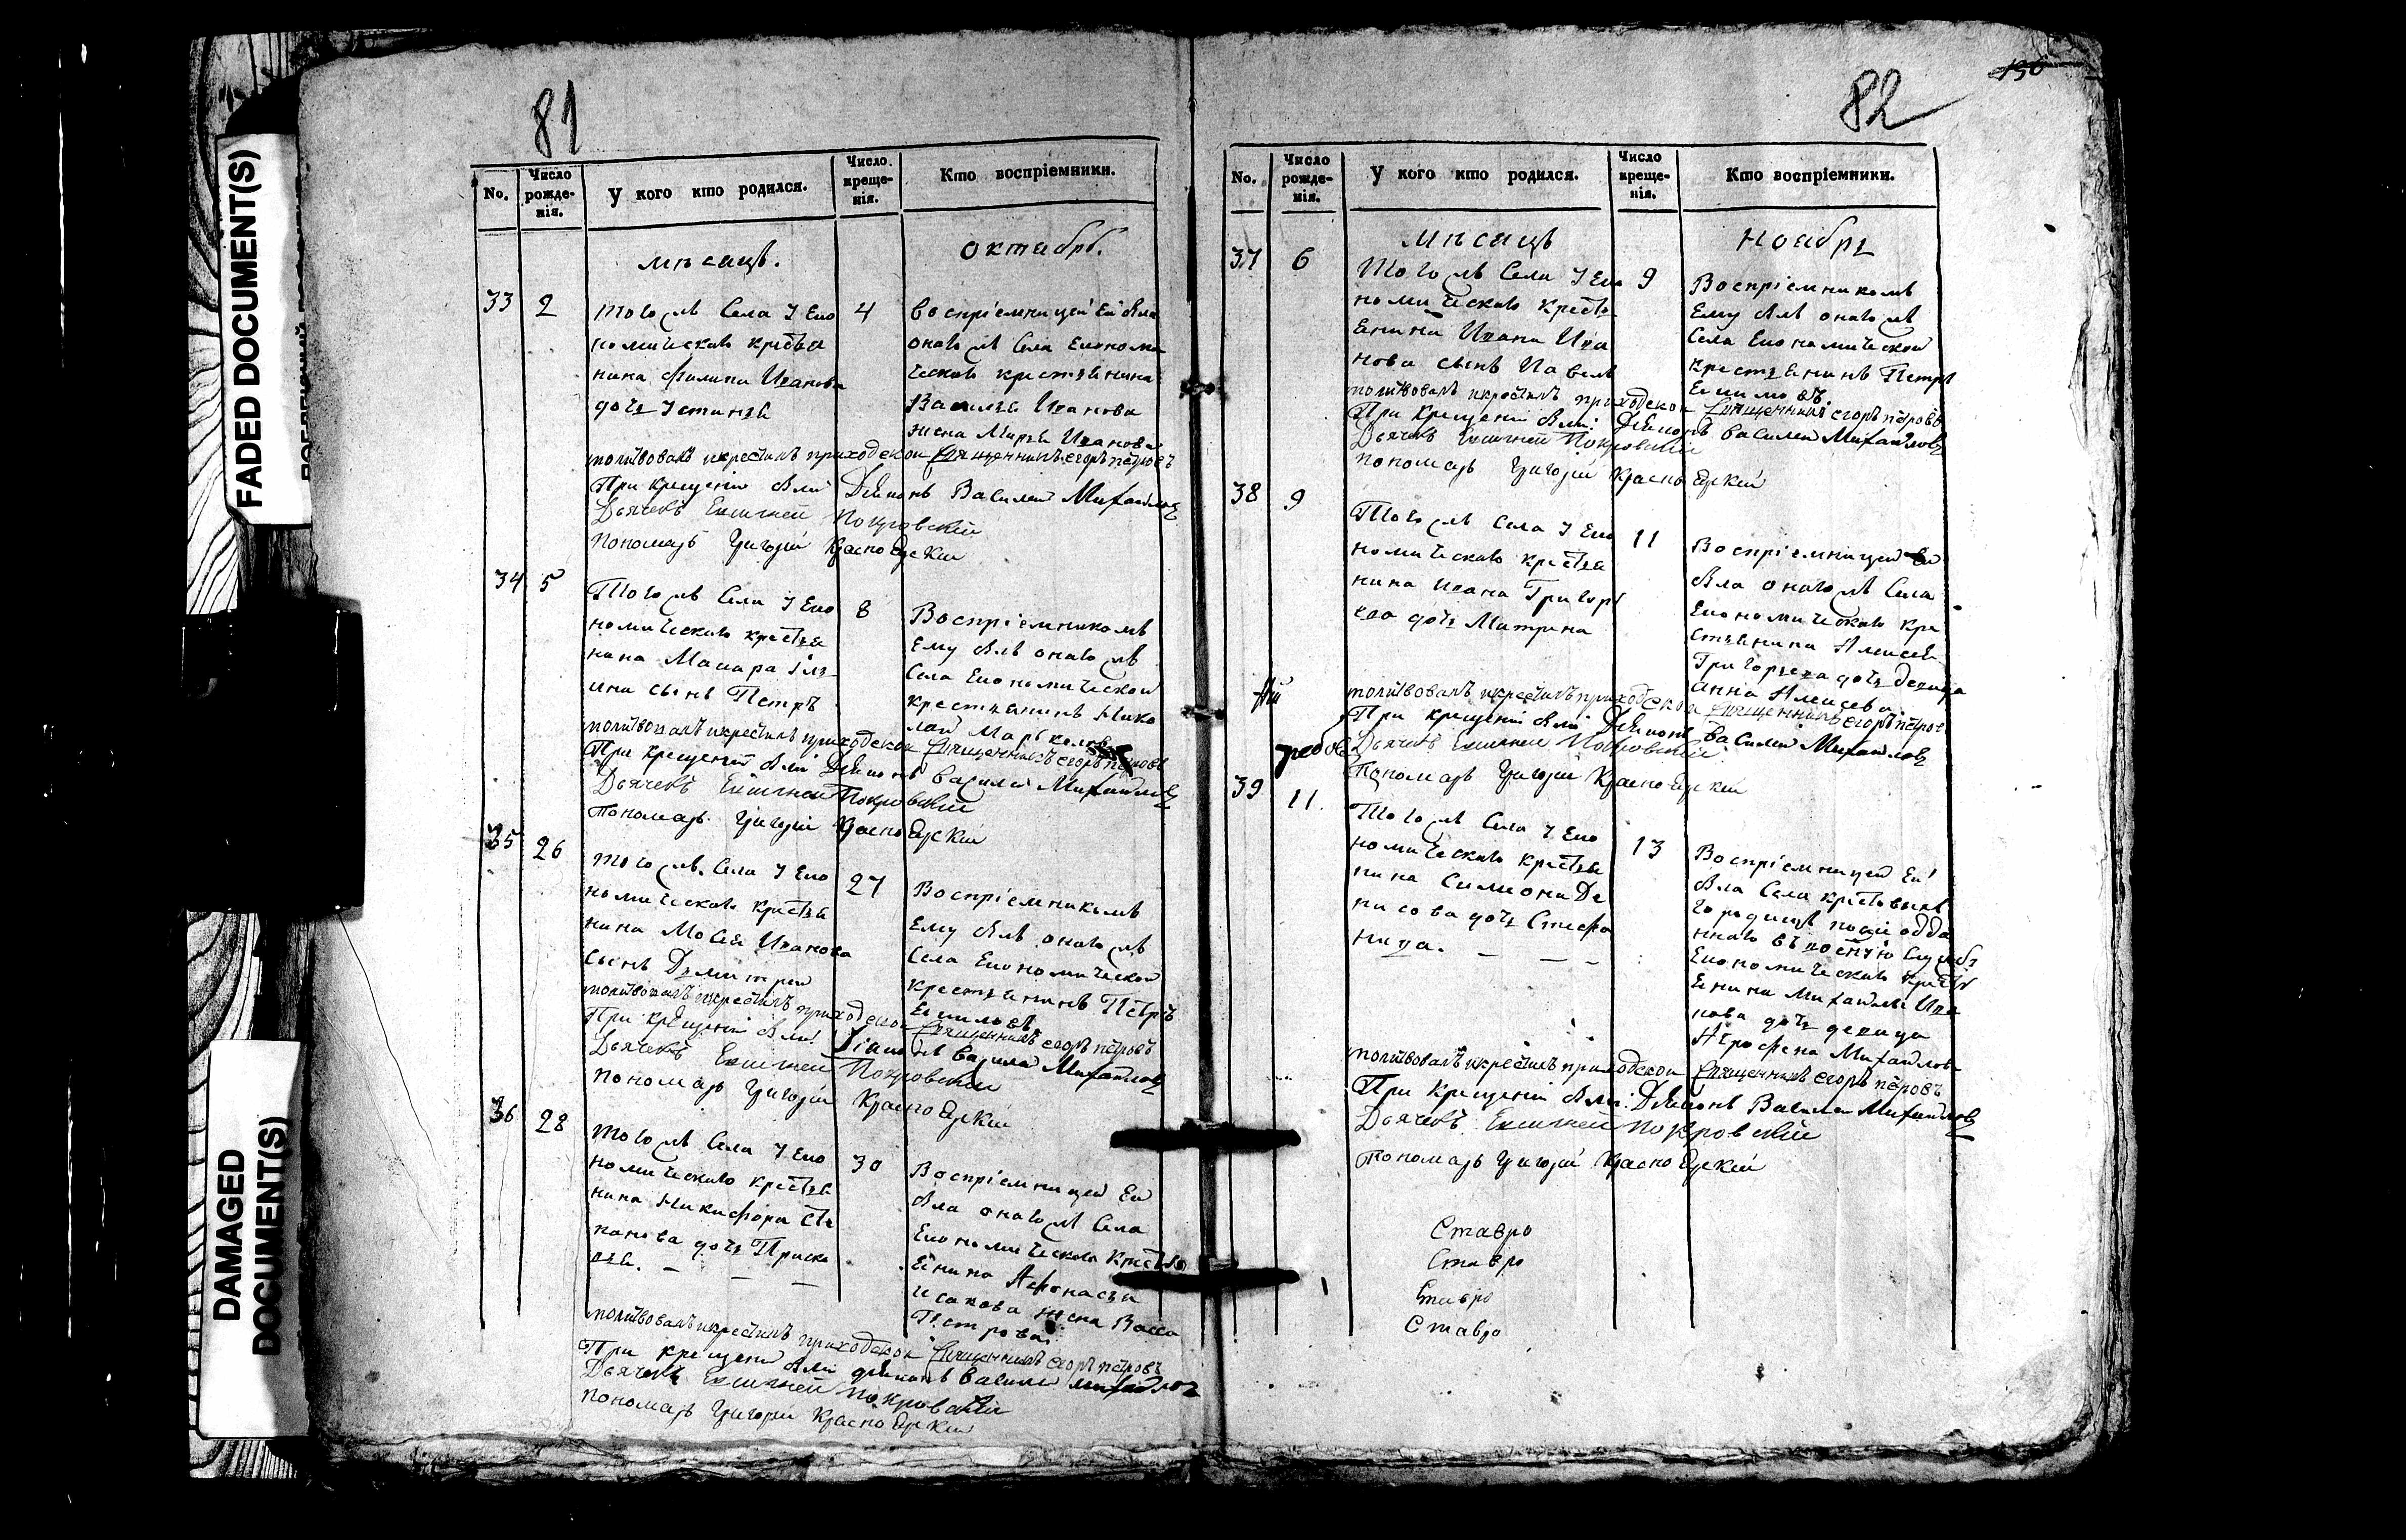 FADED DOCUMENT(S)
DAMAGED
DOCUMENT(S)
81
No.
Число
рожде-
нія.
У кого кто родился.
Число
креще-
нія.
Кто воспріемники.
мѣсяцъ.
октябрь.
33 2
Тогожъ Села Эко 4
номическаго крестья
нина Филипа Иванова
дочь Устинья
воспріемницей ей была
оногожъ Села Економи
ческаго крестьянина
Василья Иванова
жена Марья Иванова
молитвовалъ и крестилъ приходской священникъ егоръ петровъ
При крещеніи были Дьяконъ Василей Михайловъ
Дьячекъ Евгеней Покровскій
Пономарь Григорій Красноярскій
34 5
Тогожъ Села Эко 8
номическаго крестья
нина Макара
ина сынъ Петръ
Воспріемникомъ
Ему былъ оногожъ
Села Економической
крестьянинъ Нико
лай
молитвовалъ и крестилъ приходской священникъ егоръ петровъ
При крещеніи были Дьяконъ Василей Михайловъ
Дьячекъ Евгеней Покровскій
Пономарь Григорій Красноярскій
35 26
Тогожъ Села Эко 27
номическаго крестья
нина Мосея Иванова
сынъ Дмитрей
Воспріемникомъ
Ему былъ оногожъ
Села Економической
крестьянинъ Петръ
молитвовалъ и крестилъ приходской священникъ егоръ петровъ
При крещеніи были Діаконъ Василей Михайловъ
Дьячекъ Евгеней Покровскій
Пономарь Григорій Красноярскій
36 28
Тогожъ Села Эко 30
номическаго крестья
нина Никифора Сте
панова дочь Праско
вья.
Воспріемницей Ей
была оногожъ Села
Економическаго Кресть
янина Афонасья
Исакова жена Васса
Петрова
молитвовалъ и крестилъ приходской священникъ егоръ петровъ
При крещеніи были дьяконъ Василей Михайловъ
Дьячекъ Евгеней Покровскій
Пономарь Григорій Красноярскій
82
No.
Число
рожде-
нія.
У кого кто родился.
Число
креще-
нія.
Кто воспріемники.
мѣсяцъ
ноябрь
37 6
Тогожъ Села Эко 9
номическаго кресть
янина Ивана Ива
нова сынъ Павелъ
Воспріемникомъ
Ему былъ оногожъ
Села Економической
крестьянинъ Петръ
молитвовалъ и крестилъ приходской священникъ егоръ петровъ
При крещеніи были Дьяконъ Василей Михайловъ
Дьячекъ Евгеней Покровскій
Пономарь Григорій Красноярскій
38 9
Тогожъ Села Эко 11
номическаго крестья
нина Ивана Григорь
ева дочь Матрена
Воспріемницей ей
была оногожъ Села
Економическаго кре
стьянина Алексея
Григорьева дочь девица
Анна Алексева
молитвовалъ и крестилъ приходской священникъ егоръ петровъ
При крещеніи были Дьяконъ Василей Михайловъ
Дьячекъ Евгеней Покровскій
Пономарь Григорій Красноярскій
39 11
Тогожъ Села Эко 13
номическаго крестья
нина Симиона Де
нисова дочь Стефа
нида.
Воспріемницей Ей
была Села
Економическаго кресть
янина Михайла Ива
нова дочь девица
Агрофена Михайлова
молитвовалъ и крестилъ приходской священникъ егоръ петровъ
При Крещеніи были: Дьяконъ Василей Михайловъ
Дьячекъ Евгеней Покровскій
Пономарь Григорій Красноярскій
Ставро
Ставро
Ставро
Ставро